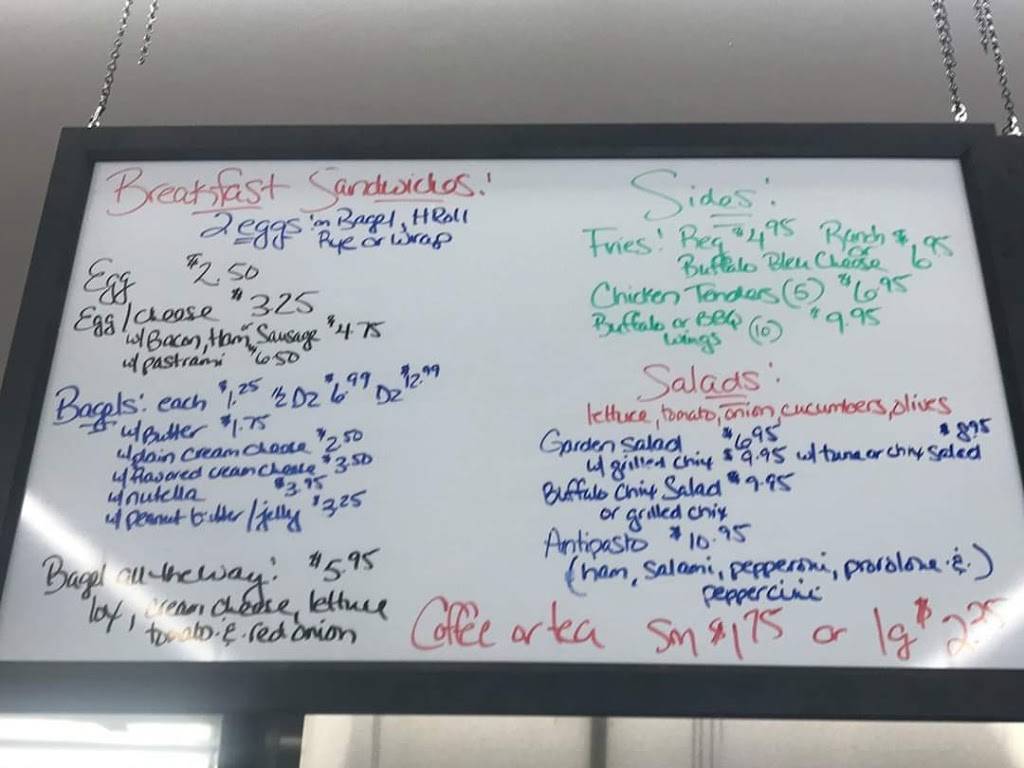 Breakfast Sandwiches!
2 eggs on Bagel, H Roll
Rye or Wrap
Egg $2.50
Egg/cheese $3.25
w/Bacon, Ham or Sausage $4.75
w/pastrami $6.50
Bagels: each $1.25 1/2 DZ $6.99 DZ $12.99
w/Butter $1.75
w/plain cream cheese $2.50
w/flavored cream cheese $3.50
w/nutella $3.95
w/peanut butter/jelly $3.25
Bagel all-the-way: $5.95
lox, cream cheese, lettuce
tomato & red onion
Sides:
Fries! Reg $4.95 Ranch or $6.95
Buffalo Bleu Cheese
Chicken Tenders (5) $6.95
Buffalo or BBQ $9.95
wings (10)
Salads:
lettuce, tomato, onion, cucumbers, olives
Garden Salad $6.95 $8.95
w/ grilled chix $9.95 w/ tuna or chix salad
Buffalo Chix Salad $9.95
or grilled chix
Antipasto $10.95
(ham, salami, pepperoni, provolone & )
peppercini
Coffee or tea Sm $1.75 or lg $2.25